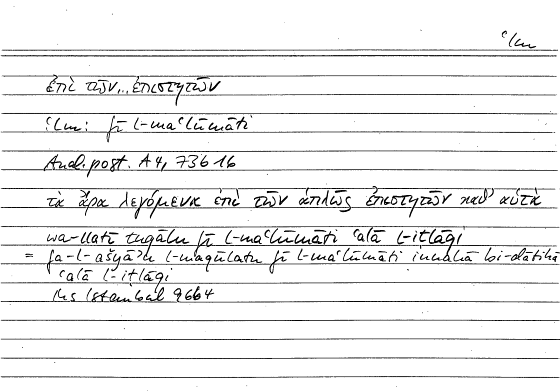 ʿlm
ἐπὶ τῶν...ἐπιστητῶν
ʿlm: fī l-maʿlūmāti
Anal. post. A 4, 73b16
τὰ ἄρα λεγόμενα ἐπὶ τῶν ἁπλῶς ἐπιστητῶν καθ' αὑτὰ
wa-llatī tuqālu fī l-maʿlūmāti ʿalā l-iṭlāqi
= fa-l-ašyāʾu l-maqūlatu fī l-maʿlūmāti innahā bi-ḏātihā
ʿalā l-iṭlāqi
Ms Istambul 9664